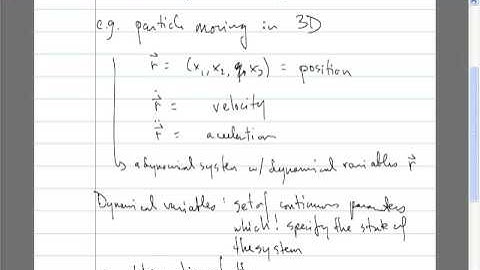 e.g. particle moving in 3D
r⃗ = (x₁, x₂, x₃) = position
ṙ⃗ = velocity
r̈⃗ = acceleration
↳ a dynamical system w/ dynamical variables r⃗
Dynamical variables : set of continuous parameters
which ! specify the state of
the system